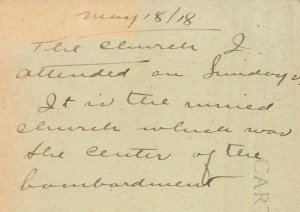 May 18/18
The church I
attended on Sunday
It is the ruined
church which was
the center of the
bombardment
CART